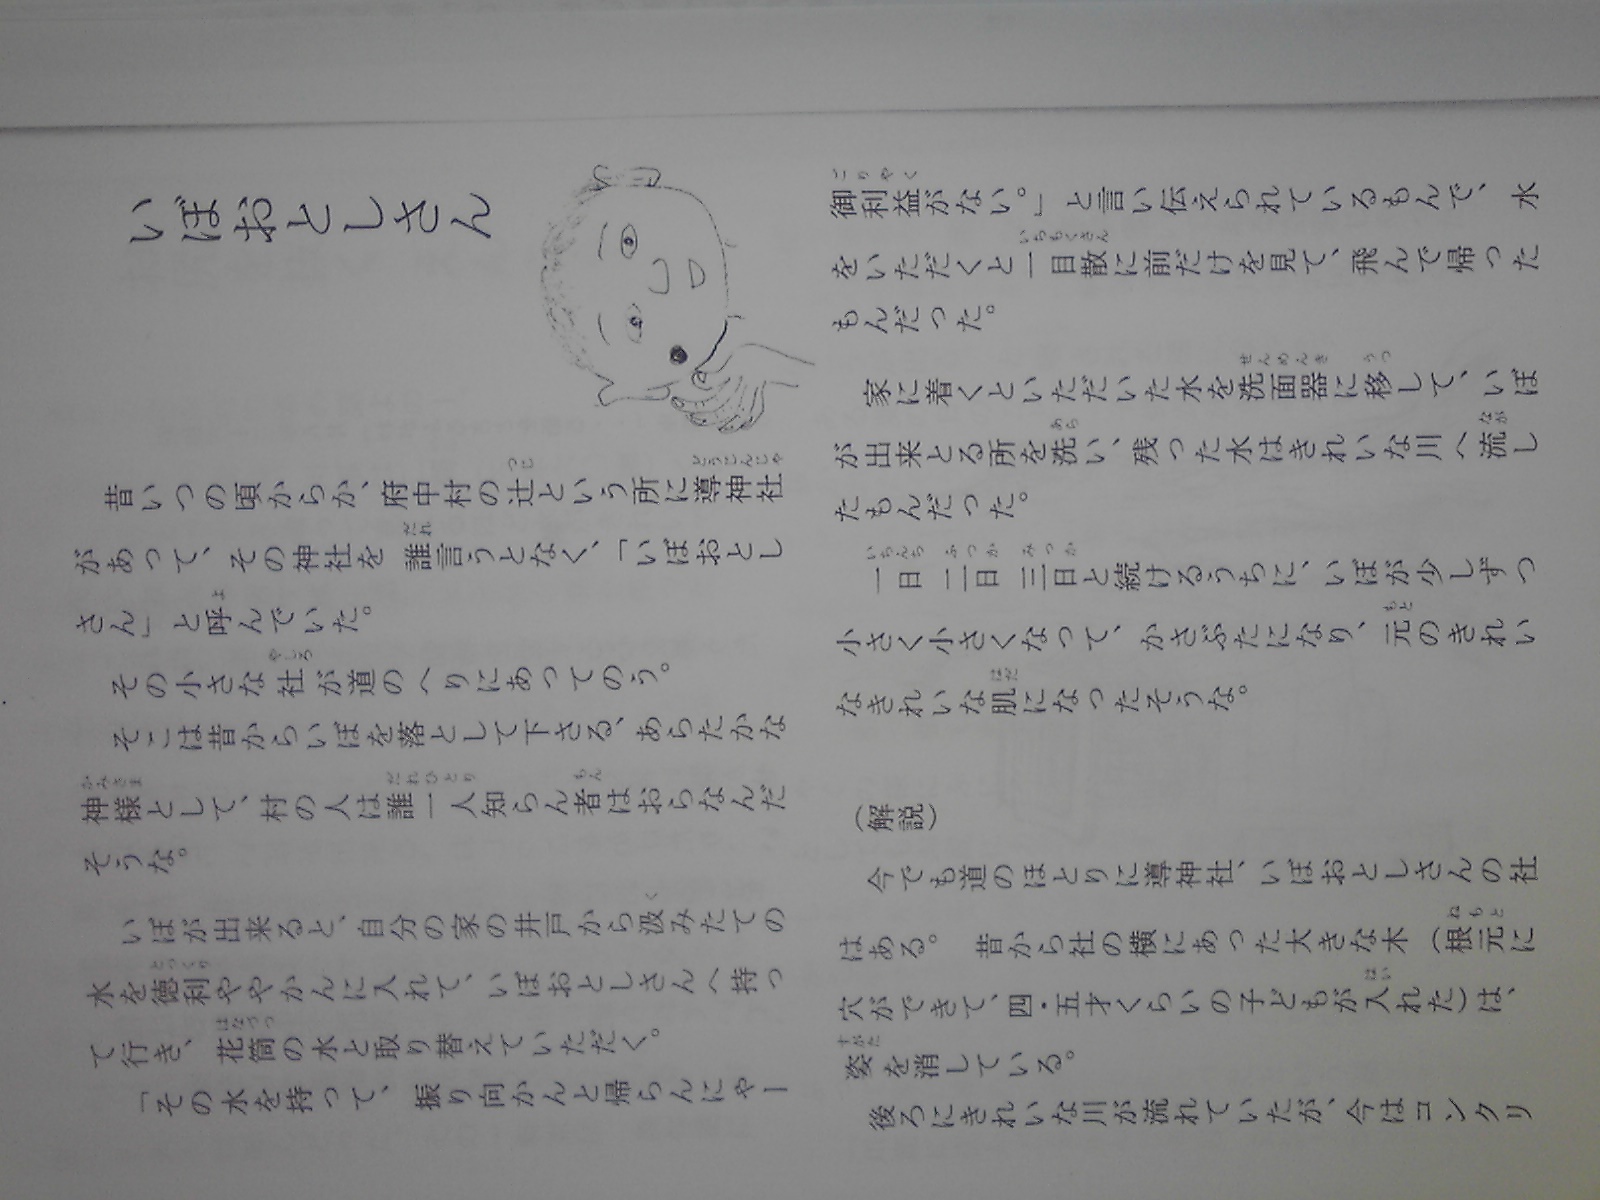 いぼおとしさん
昔いつの頃からか、府中村の辻という所に導神社
があって、その神社を 誰言うとなく、「いぼおとし
さん」と呼んでいた。
その小さな社が道のへりにあってのう。
そこは昔からいぼを落として下さる、あらたかな
神様として、村の人は誰一人知らん者はおらなんだ
そうな。
いぼが出来ると、自分の家の井戸から汲みたての
水を徳利ややかんに入れて、いぼおとしさんへ持っ
て行き、花筒の水と取り替えていただく。
「その水を持って、振り向かんと帰らんにゃー
御利益がない。」と言い伝えられているもんで、水
をいただくと一目散に前だけを見て、飛んで帰った
もんだった。
家に着くといただいた水を洗面器に移して、いぼ
が出来とる所を洗い、残った水はきれいな川へ流し
たもんだった。
一日 二日 三日と続けるうちに、いぼが少しずつ
小さく小さくなって、かさぶたになり、元のきれい
なきれいな肌になったそうな。
（解説）
今でも道のほとりに導神社、いぼおとしさんの社
はある。 昔から社の横にあった大きな木（根元に
穴ができて、四・五才くらいの子どもが入れた）は、
姿を消している。
後ろにきれいな川が流れていたが、今はコンクリ